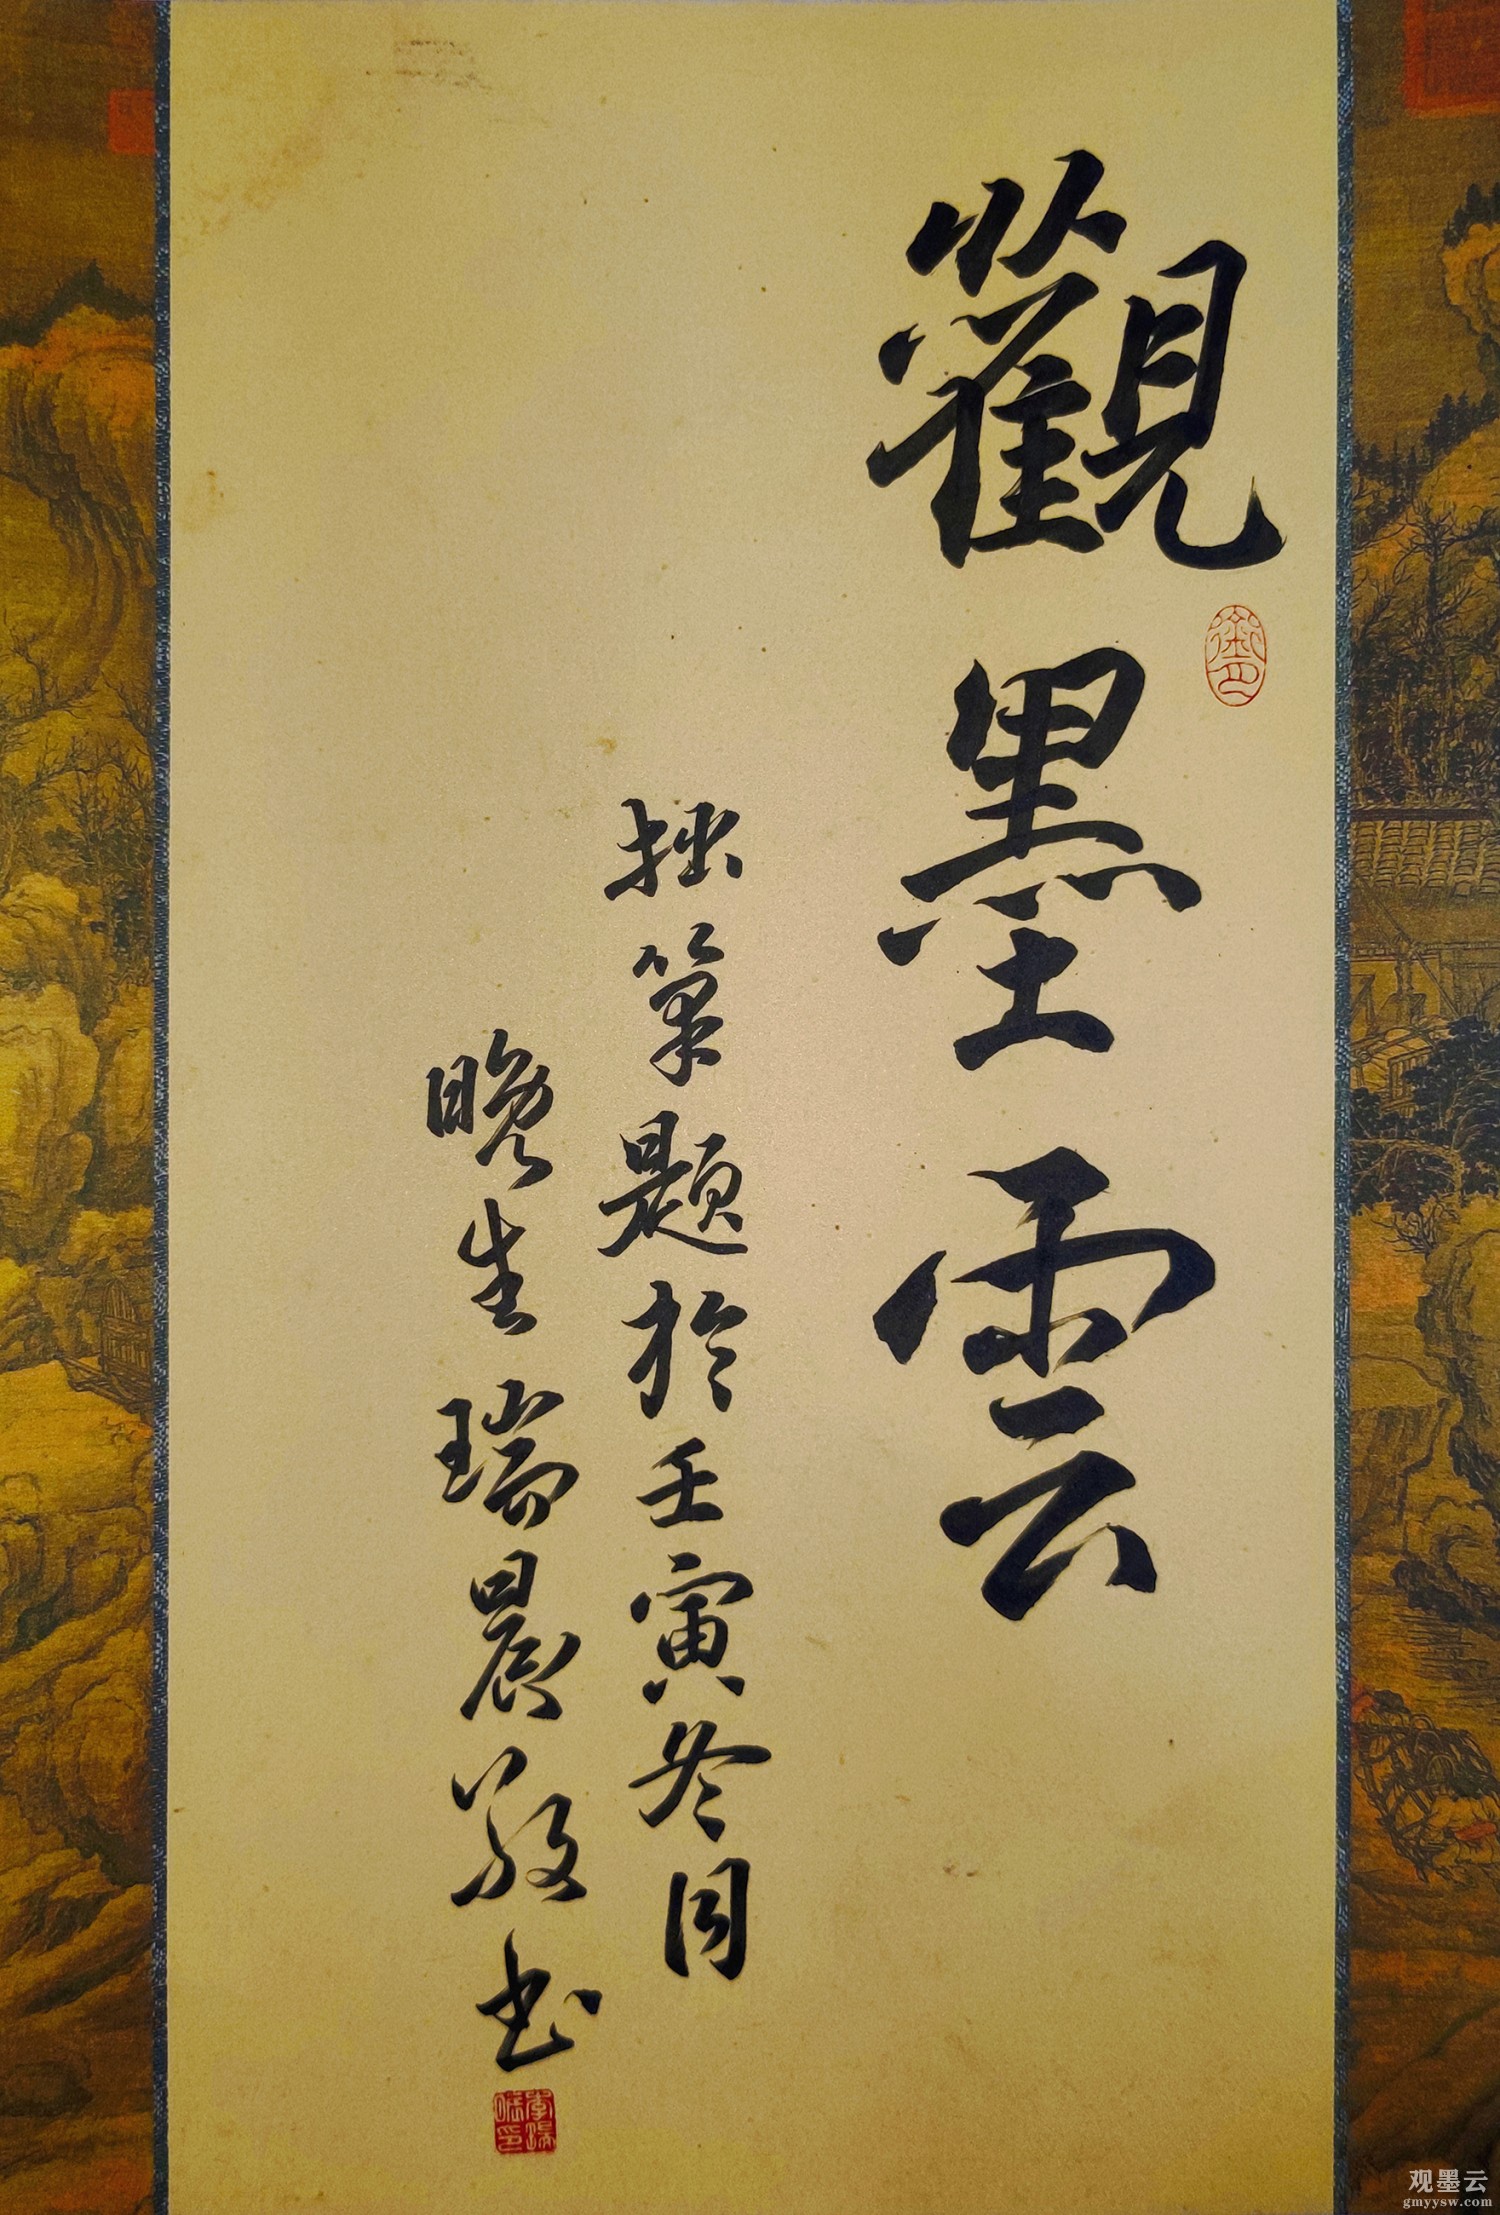 觀墨雲
拙筆題於壬寅冬月
晚生瑞晨敬书
观墨云
gmyysw.com